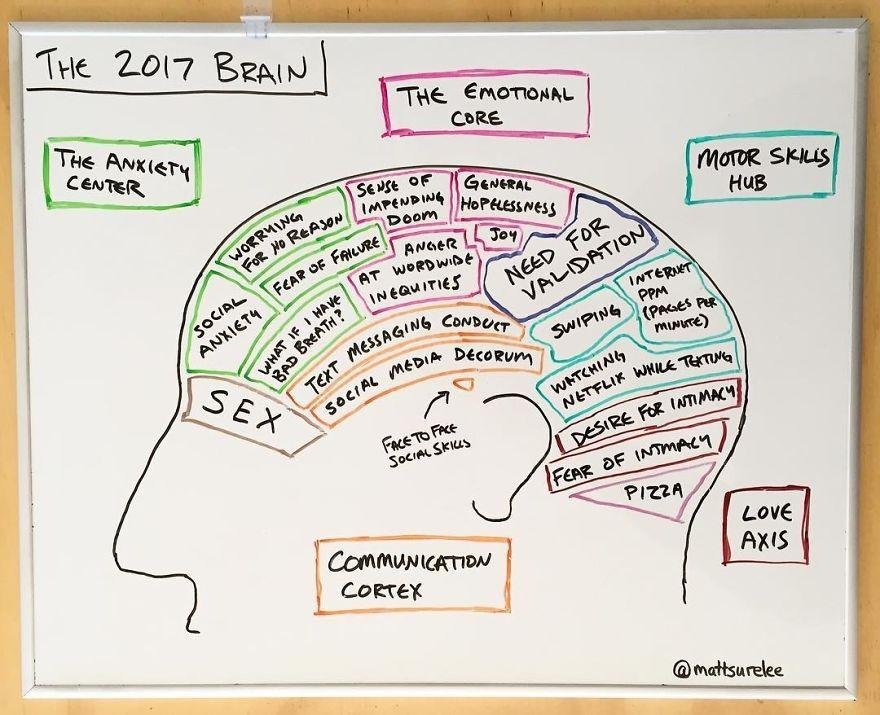 THE 2017 BRAIN
THE EMOTIONAL
CORE
THE ANXIETY
CENTER
MOTOR SKILLS
HUB
WORRYING
FOR NO REASON
FEAR OF FAILURE
SOCIAL
ANXIETY
WHAT IF I HAVE
BAD BREATH?
SENSE OF
IMPENDING
DOOM
GENERAL
HOPELESSNESS
JOY
ANGER
AT WORDWIDE
INEQUITIES
NEED FOR
VALIDATION
SWIPING
INTERNET
PPM
(PAGES PER
MINUTE)
WATCHING
NETFLIX WHILE TEXTING
TEXT MESSAGING CONDUCT
SOCIAL MEDIA DECORUM
FACE TO FACE
SOCIAL SKILLS
SEX
DESIRE FOR INTIMACY
FEAR OF INTIMACY
PIZZA
LOVE
AXIS
COMMUNICATION
CORTEX
@mattsurelee